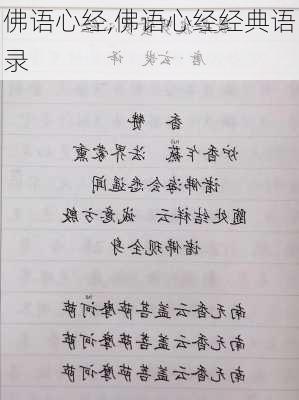 佛语心经,佛语心经经典语
录
唐·玄奘 译
香 赞
炉香乍爇 法界蒙熏
诸佛海会悉遥闻
随处结祥云 诚意方殷
诸佛现全身
南无香云盖菩萨摩诃萨
南无香云盖菩萨摩诃萨
南无香云盖菩萨摩诃萨